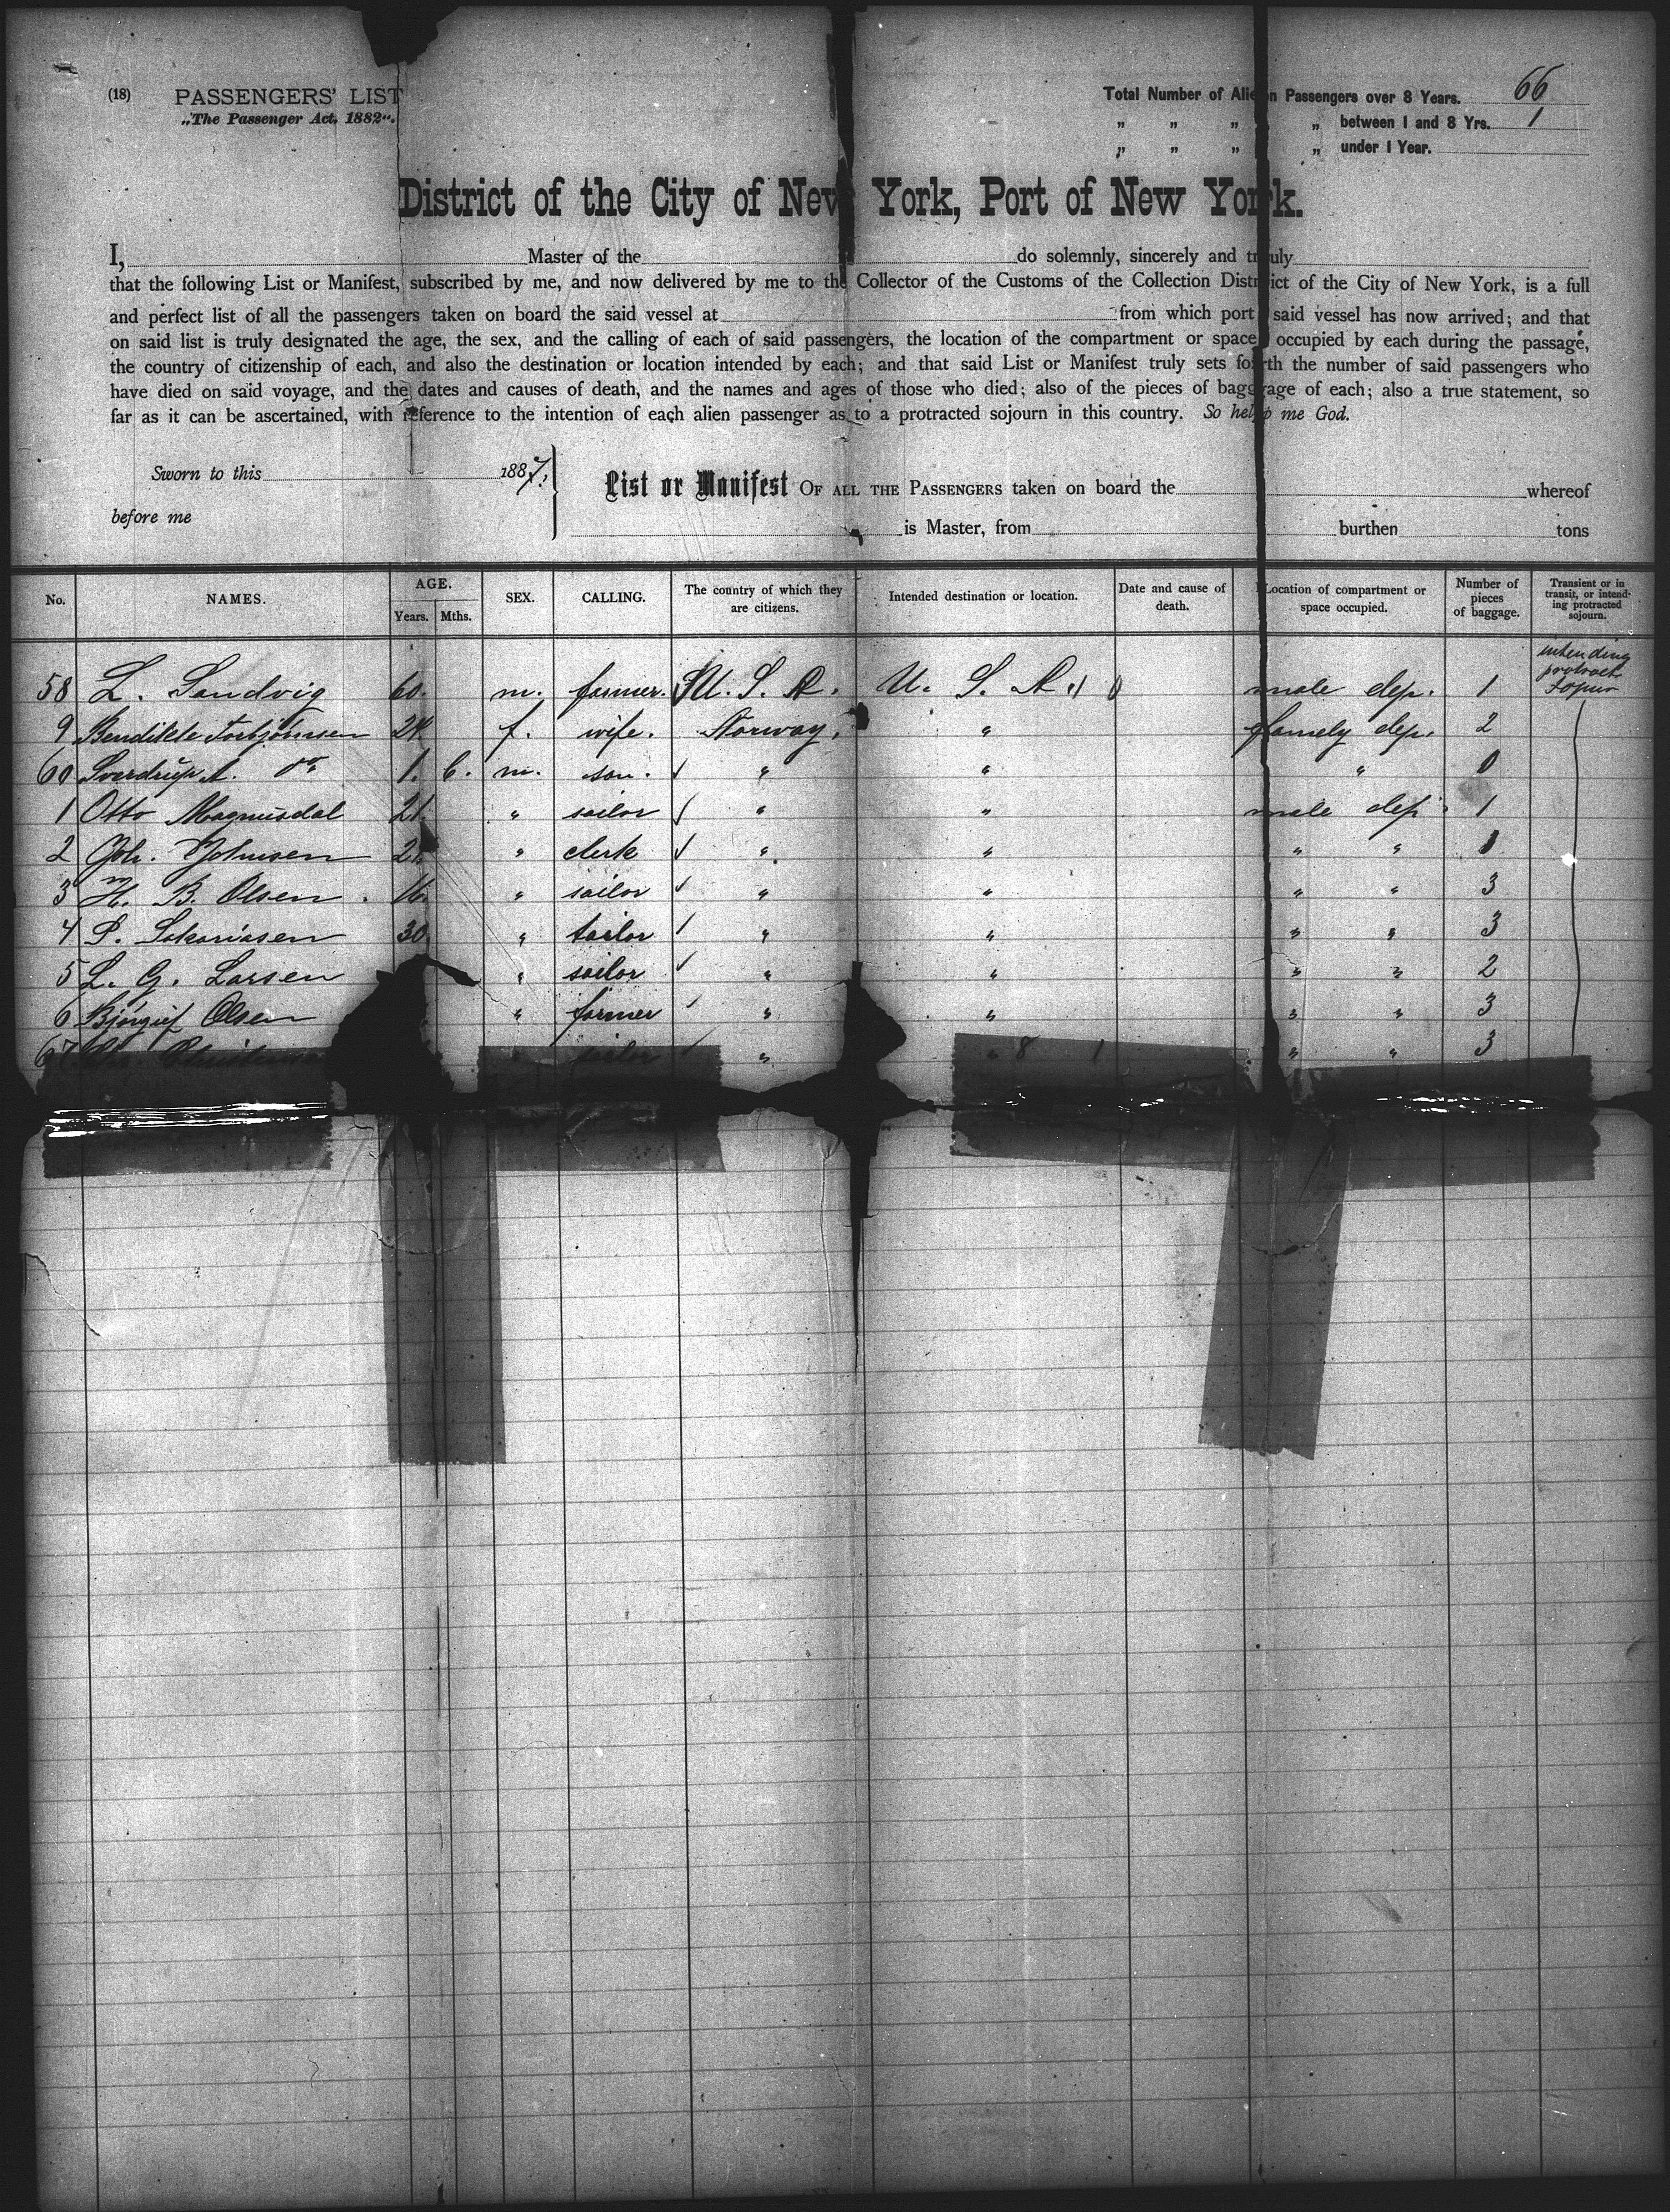 (18) PASSENGERS' LIST
„The Passenger Act, 1882“.
Total Number of Alien Passengers over 8 Years. 66
„ „ „ „ between 1 and 8 Yrs. 1
„ „ „ „ under 1 Year.
District of the City of New York, Port of New York.
I, Master of the do solemnly, sincerely and truly
that the following List or Manifest, subscribed by me, and now delivered by me to the Collector of the Customs of the Collection District of the City of New York, is a full
and perfect list of all the passengers taken on board the said vessel at from which port said vessel has now arrived; and that
on said list is truly designated the age, the sex, and the calling of each of said passengers, the location of the compartment or space occupied by each during the passage,
the country of citizenship of each, and also the destination or location intended by each; and that said List or Manifest truly sets forth the number of said passengers who
have died on said voyage, and the dates and causes of death, and the names and ages of those who died; also of the pieces of baggage of each; also a true statement, so
far as it can be ascertained, with reference to the intention of each alien passenger as to a protracted sojourn in this country. So help me God.
Sworn to this 1887.
before me
List or Manifest OF ALL THE PASSENGERS taken on board the whereof
is Master, from burthen tons
No. NAMES. AGE. Years. Mths. SEX. CALLING. The country of which they are citizens. Intended destination or location. Date and cause of death. Location of compartment or space occupied. Number of pieces of baggage. Transient or in transit, or intending protracted sojourn.
58 L. Sandvig 60. m. farmer. U. S. A. U. S. A. male dep. 1 intending protract
9 Bendikte Torbjörnsen 24. f. wife. Norway. " famely dep. 2
60 Sverdrup A. do 1. 6. m. son. " " " 0
1 Otto Magnusdal 21. " sailor " " male dep. 1
2 Joh. Johnsen " clerk " " " " 1
3 H. B. Olsen 16. " sailor " " " " 3
4 P. Sakariasen 30 " tailor " " " " 3
5 L. G. Larsen " sailor " " " " 2
6 Olsen " farmer " " " " 3
67 " sailor " " 8 1 " " 3